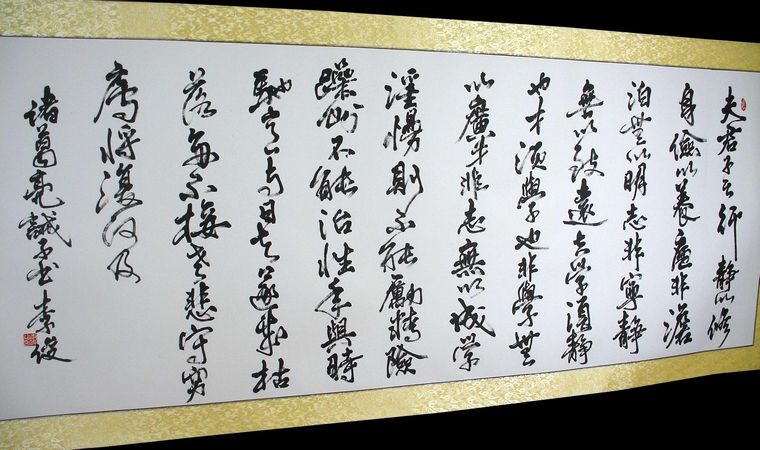 夫君子之行静以修
身儉以養非澹
泊無以明志非寧静
無以致遠夫學須静
也才須學也非學無
以廣才非志無以成學
淫慢則不能勵精險
躁則不能治性年與時
馳意與日去遂成枯
落多不接世悲守窮
廬將復何及
諸葛亮誡子書李俊